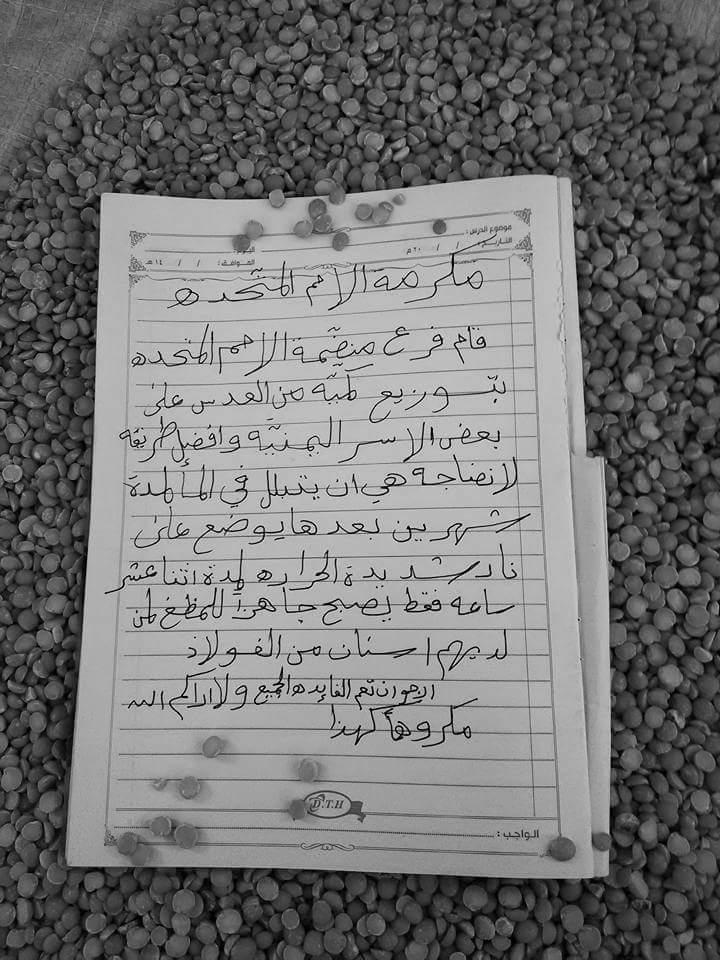 موضوع الدرس :
التاريخ : / / ٢٠ م
اليوم :
الموافق : / / ١٤ هـ
مكرمة الامم المتحده
قام فرع منضمة الامم المتحده
بتوزيع كميه من العدس على
بعض الاسر اليمنيه وافضل طريقه
لانضاجه هي ان يتبلل في الماء لمدة
شهرين بعدها يوضع على
نار شديدة الحراره لمدة اثنا عشر
ساعه فقط يصبح جاهزاً للمظغ لمن
لديهم اسنان من الفولاذ
ارجو ان تعم الفايده الجميع ولا اراكم الله
مكروهاً كهذا
D.T.H
الواجب :